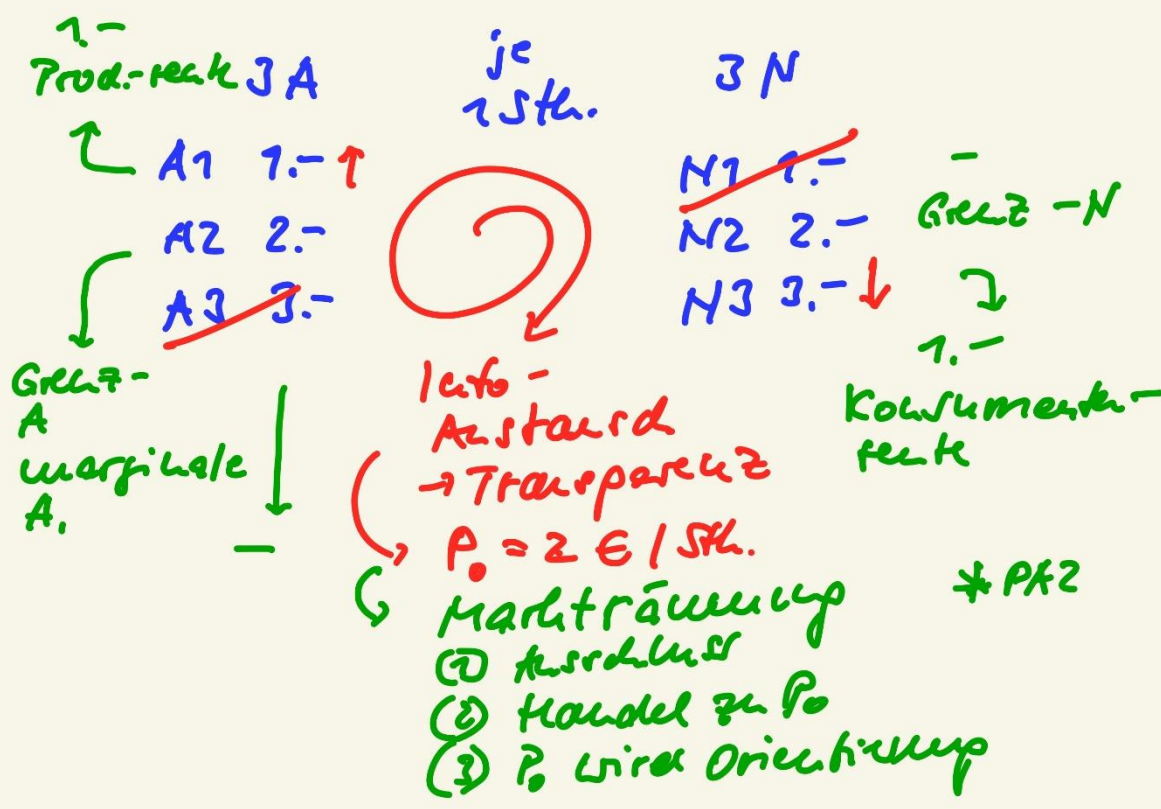 1.-
Prod.-rente 3 A
je
1 Stk.
3 N
A1 1.-
A2 2.-
A3 3.-
N1 1.-
N2 2.-
N3 3.-
-
Grenz -N
1.-
Konsumenten-
rente
Grenz-
A
marginale
A.
-
Info -
Austausch
→ Transparenz
P₀ = 2 € / Stk.
Markträumung
(1) Ausschluss
(2) Handel zu P₀
(3) P₀ wird Orientierung
* PAZ